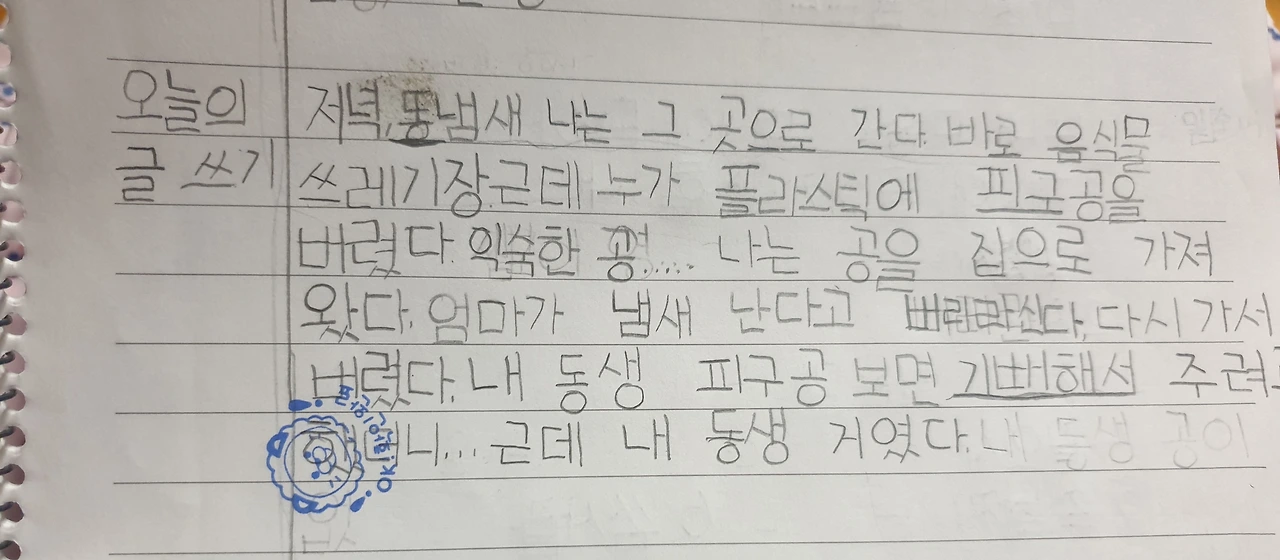 오늘의 저녁, 똥냄새 나는 그 곳으로 간다. 바로 음식물
글 쓰기 쓰레기장. 근데 누가 플라스틱에 피구공을
버렸다. 익숙한 공...... 나는 공을 집으로 가져
왔다. 엄마가 냄새 난다고 다시 가서
버렸다. 내 동생 피구공 보면 기뻐해서 주려
니... 근데 내 동생 거였다. 내 동생 공이
OK!